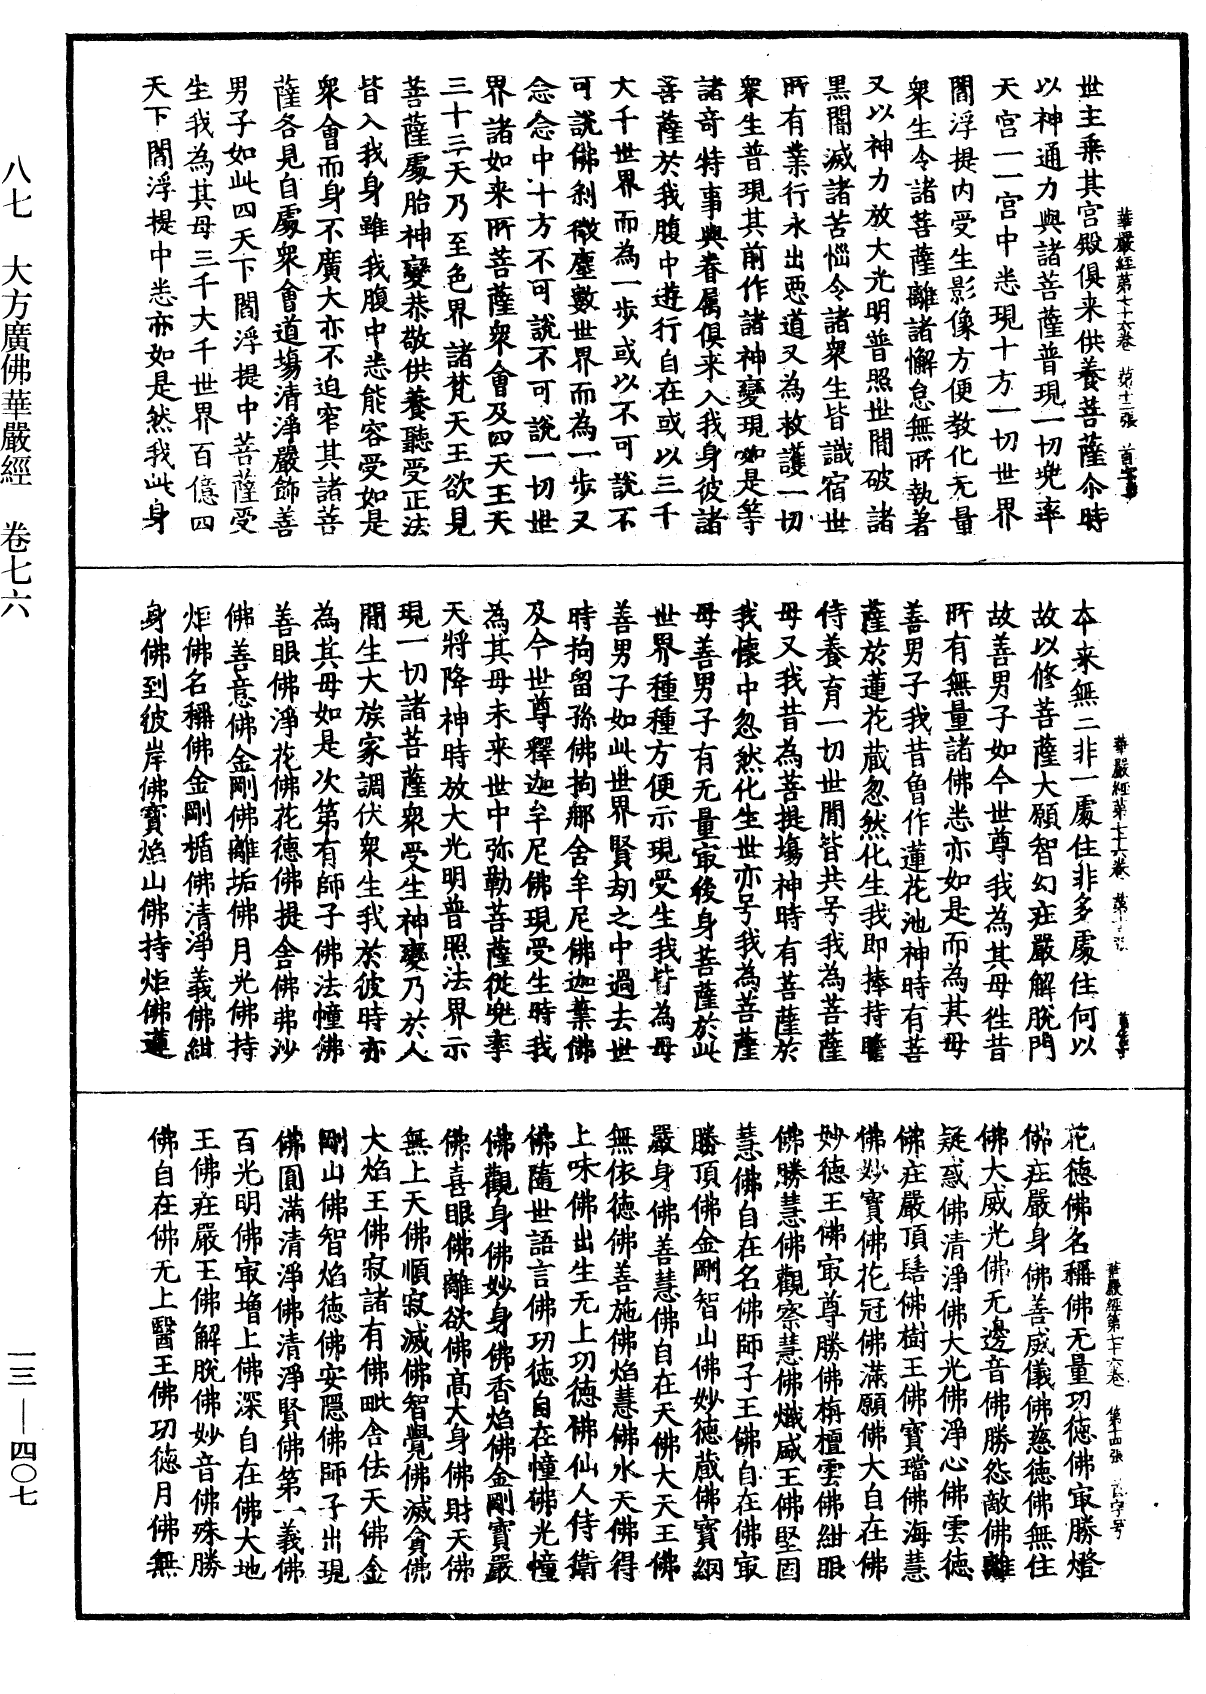 華嚴經第七十六卷 第十二張 首字号
世主乘其宫殿俱来供養菩薩尒時
以神通力與諸菩薩普現一切兜率
天宫一一宫中悉現十方一切世界
閻浮提内受生影像方便教化无量
衆生令諸菩薩離諸懈怠無所執著
又以神力放大光明普照世間破諸
黑闇滅諸苦惱令諸衆生皆識宿世
所有業行永出惡道又為救護一切
衆生普現其前作諸神變現如是等
諸竒特事與眷属俱来入我身彼諸
菩薩於我腹中遊行自在或以三千
大千世界而為一步或以不可說不
可說佛刹微塵數世界而為一步又
念念中十方不可說不可說一切世
界諸如来所菩薩衆會及四天王天
三十三天乃至色界諸梵天王欲見
菩薩處胎神變恭敬供養聽受正法
皆入我身雖我腹中悉能容受如是
衆會而身不廣大亦不迫窄其諸菩
薩各見自處衆會道場清淨嚴飾善
男子如此四天下閻浮提中菩薩受
生我為其母三千大千世界百億四
天下閻浮提中悉亦如是然我此身
華嚴經第七十六卷 第十三張 首字号
本来無二非一處住非多處住何以
故以修菩薩大願智幻庄嚴解脫門
故善男子如今世尊我為其母徃昔
所有無量諸佛悉亦如是而為其母
善男子我昔曾作蓮花池神時有菩
薩於蓮花藏忽然化生我即捧持瞻
侍養育一切世間皆共号我為菩薩
母又我昔為菩提場神時有菩薩於
我懷中忽然化生世亦号我為菩薩
母善男子有无量㝡後身菩薩於此
世界種種方便示現受生我皆為母
善男子如此世界賢劫之中過去世
時拘留孫佛拘那舍牟尼佛迦葉佛
及今世尊釋迦牟尼佛現受生時我
為其母未来世中弥勒菩薩從兜率
天將降神時放大光明普照法界示
現一切諸菩薩衆受生神變乃於人
間生大族家調伏衆生我於彼時亦
為其母如是次第有師子佛法幢佛
善眼佛淨花佛花德佛提舍佛弗沙
佛善意佛金剛佛離垢佛月光佛持
炬佛名稱佛金剛楯佛清淨義佛紺
身佛到彼岸佛寶焰山佛持炬佛蓮
華嚴經第七十六卷 第十四張 首字号
花德佛名稱佛无量功德佛㝡勝燈
佛庄嚴身佛善威儀佛慈德佛無住
佛大威光佛无邊音佛勝怨敵佛離
疑惑佛清淨佛大光佛淨心佛雲德
佛庄嚴頂髻佛樹王佛寶璫佛海慧
佛妙寶佛花冠佛滿願佛大自在佛
妙德王佛㝡尊勝佛栴檀雲佛紺眼
佛勝慧佛觀察慧佛熾盛王佛堅固
慧佛自在名佛師子王佛自在佛㝡
勝頂佛金剛智山佛妙德藏佛寶網
嚴身佛善慧佛自在天佛大天王佛
無依德佛善施佛焰慧佛水天佛得
上味佛出生无上功德佛仙人侍衛
佛隨世語言佛功德自在幢佛光幢
佛觀身佛妙身佛香焰佛金剛寶嚴
佛喜眼佛離欲佛高大身佛財天佛
無上天佛順寂滅佛智覺佛滅貪佛
大焰王佛寂諸有佛毗舍佉天佛金
剛山佛智焰德佛安隱佛師子出現
佛圓滿清淨佛清淨賢佛第一義佛
百光明佛㝡增上佛深自在佛大地
王佛庄嚴王佛解脫佛妙音佛殊勝
佛自在佛无上醫王佛功德月佛無
八七 大方廣佛華嚴經 卷七六
一三—四〇七